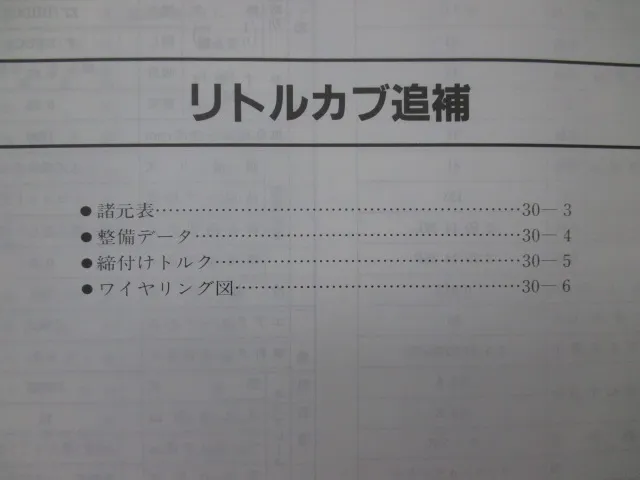 リトルカブ追補
●諸元表……………………………………………30―3
●整備データ………………………………………30―4
●締付けトルク……………………………………30―5
●ワイヤリング図…………………………………30―6